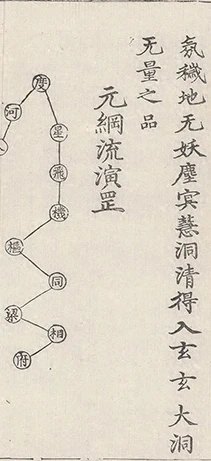 氛穢地无妖塵㝠慧洞清得入玄玄大洞
无量之品
元綱流演罡
度
河
星
飛
機
樞
同
梁
相
府